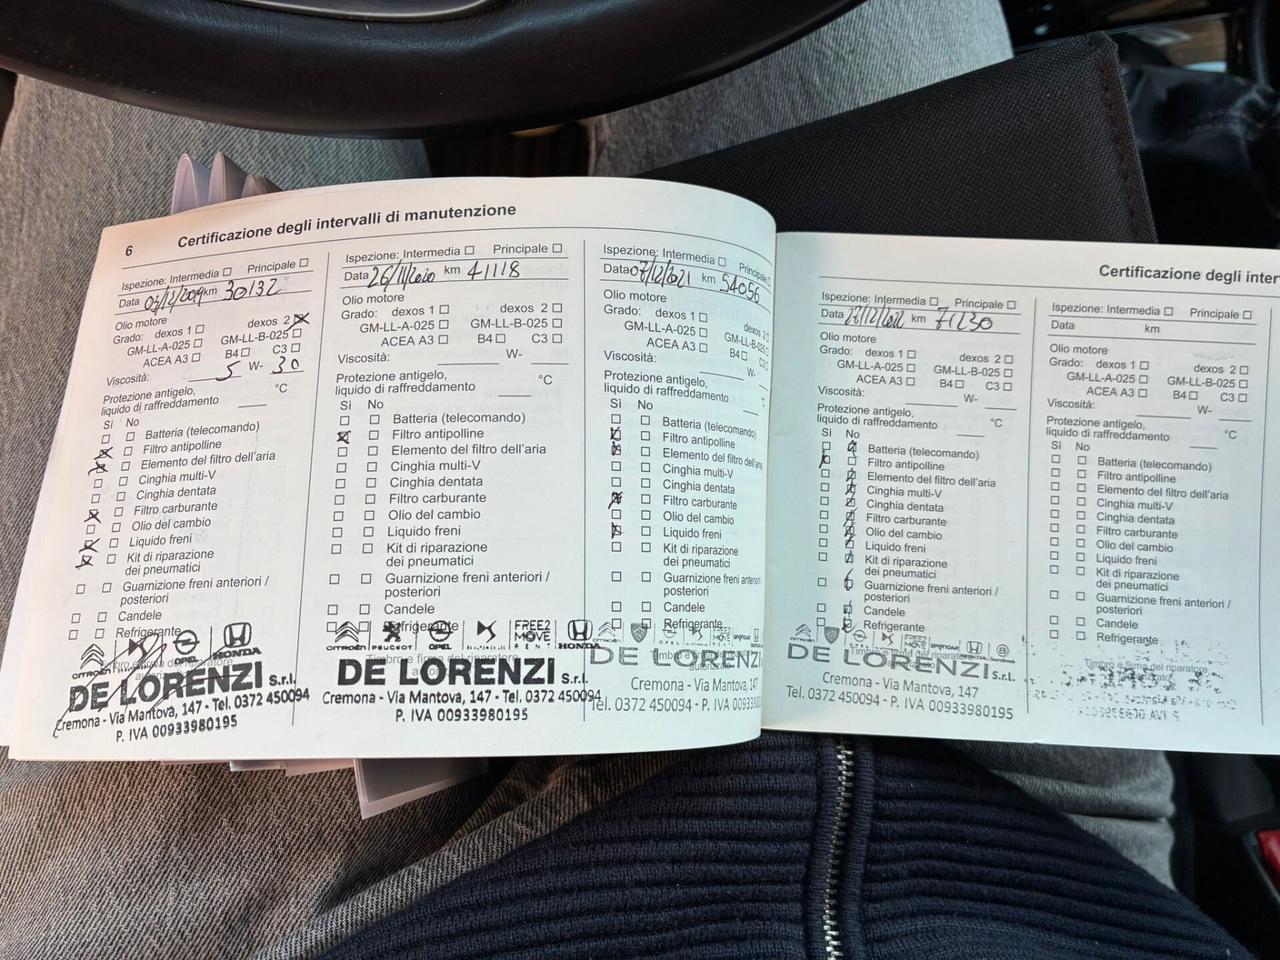 6
Certificazione degli intervalli di manutenzione
Ispezione: Intermedia ☐ Principale ☐
Data 03/12/2019 km 30132
Olio motore
Grado: dexos 1 ☐ dexos 2 ☒
GM-LL-A-025 ☐ GM-LL-B-025 ☐
ACEA A3 ☐ B4 ☐ C3 ☐
Viscosità: 5 W- 30
Protezione antigelo,
liquido di raffreddamento ____ °C
Sì No
☐ ☐ Batteria (telecomando)
☒ ☐ Filtro antipolline
☒ ☐ Elemento del filtro dell'aria
☐ ☐ Cinghia multi-V
☐ ☐ Cinghia dentata
☒ ☐ Filtro carburante
☐ ☐ Olio del cambio
☒ ☐ Liquido freni
☒ ☐ Kit di riparazione
dei pneumatici
☐ ☐ Guarnizione freni anteriori /
posteriori
☐ ☐ Candele
☐ ☐ Refrigerante
CITROËN OPEL HONDA
DE LORENZI s.r.l.
Cremona - Via Mantova, 147 - Tel. 0372 450094
P. IVA 00933980195
Ispezione: Intermedia ☐ Principale ☐
Data 26/11/2020 km 41118
Olio motore
Grado: dexos 1 ☐ dexos 2 ☐
GM-LL-A-025 ☐ GM-LL-B-025 ☐
ACEA A3 ☐ B4 ☐ C3 ☐
Viscosità: ____ W- ____
Protezione antigelo,
liquido di raffreddamento ____ °C
Sì No
☐ ☐ Batteria (telecomando)
☒ ☐ Filtro antipolline
☐ ☐ Elemento del filtro dell'aria
☐ ☐ Cinghia multi-V
☐ ☐ Cinghia dentata
☐ ☐ Filtro carburante
☐ ☐ Olio del cambio
☐ ☐ Liquido freni
☐ ☐ Kit di riparazione
dei pneumatici
☐ ☐ Guarnizione freni anteriori /
posteriori
☐ ☐ Candele
☐ ☐ Refrigerante
CITROËN PEUGEOT OPEL DS FREE2 MOVE RENT HONDA
Timbro e firma del riparatore
DE LORENZI s.r.l.
Cremona - Via Mantova, 147 - Tel. 0372 450094
P. IVA 00933980195
Ispezione: Intermedia ☐ Principale
Data 07/12/2021 km 54056
Olio motore
Grado: dexos 1 ☐ dexos 2
GM-LL-A-025 ☐ GM-LL-B-025
ACEA A3 ☐ B4 ☐ C3
Viscosità: ____ W-
Protezione antigelo,
liquido di raffreddamento ____
Sì No
☐ ☐ Batteria (telecomando)
☒ ☐ Filtro antipolline
☒ ☐ Elemento del filtro dell'aria
☐ ☐ Cinghia multi-V
☐ ☐ Cinghia dentata
☒ ☐ Filtro carburante
☐ ☐ Olio del cambio
☒ ☐ Liquido freni
☐ ☐ Kit di riparazione
dei pneumatici
☐ ☐ Guarnizione freni anteriori /
posteriori
☐ ☐ Candele
☐ ☐ Refrigerante
DE LORENZI
Cremona - Via Mantova, 147
Tel. 0372 450094 - P. IVA 009339
Certificazione degli inter
Ispezione: Intermedia ☐ Principale ☐
Data 27/12/2022 km 71230
Olio motore
Grado: dexos 1 ☐ dexos 2 ☐
GM-LL-A-025 ☐ GM-LL-B-025 ☐
ACEA A3 ☐ B4 ☐ C3 ☐
Viscosità: ____ W- ____
Protezione antigelo,
liquido di raffreddamento ____ °C
Sì No
☐ ☒ Batteria (telecomando)
☒ ☐ Filtro antipolline
☐ ☒ Elemento del filtro dell'aria
☐ ☒ Cinghia multi-V
☐ ☒ Cinghia dentata
☐ ☒ Filtro carburante
☐ ☒ Olio del cambio
☐ ☒ Liquido freni
☐ ☒ Kit di riparazione
dei pneumatici
☐ ☒ Guarnizione freni anteriori /
posteriori
☐ ☒ Candele
☐ ☒ Refrigerante
DE LORENZI s.r.l.
Cremona - Via Mantova, 147
Tel. 0372 450094 - P. IVA 00933980195
Ispezione: Intermedia ☐ Principale ☐
Data km
Olio motore
Grado: dexos 1 ☐ dexos 2 ☐
GM-LL-A-025 ☐ GM-LL-B-025 ☐
ACEA A3 ☐ B4 ☐ C3 ☐
Viscosità: ____ W- ____
Protezione antigelo,
liquido di raffreddamento ____ °C
Sì No
☐ ☐ Batteria (telecomando)
☐ ☐ Filtro antipolline
☐ ☐ Elemento del filtro dell'aria
☐ ☐ Cinghia multi-V
☐ ☐ Cinghia dentata
☐ ☐ Filtro carburante
☐ ☐ Olio del cambio
☐ ☐ Liquido freni
☐ ☐ Kit di riparazione
dei pneumatici
☐ ☐ Guarnizione freni anteriori /
posteriori
☐ ☐ Candele
☐ ☐ Refrigerante
Timbro e firma del riparatore